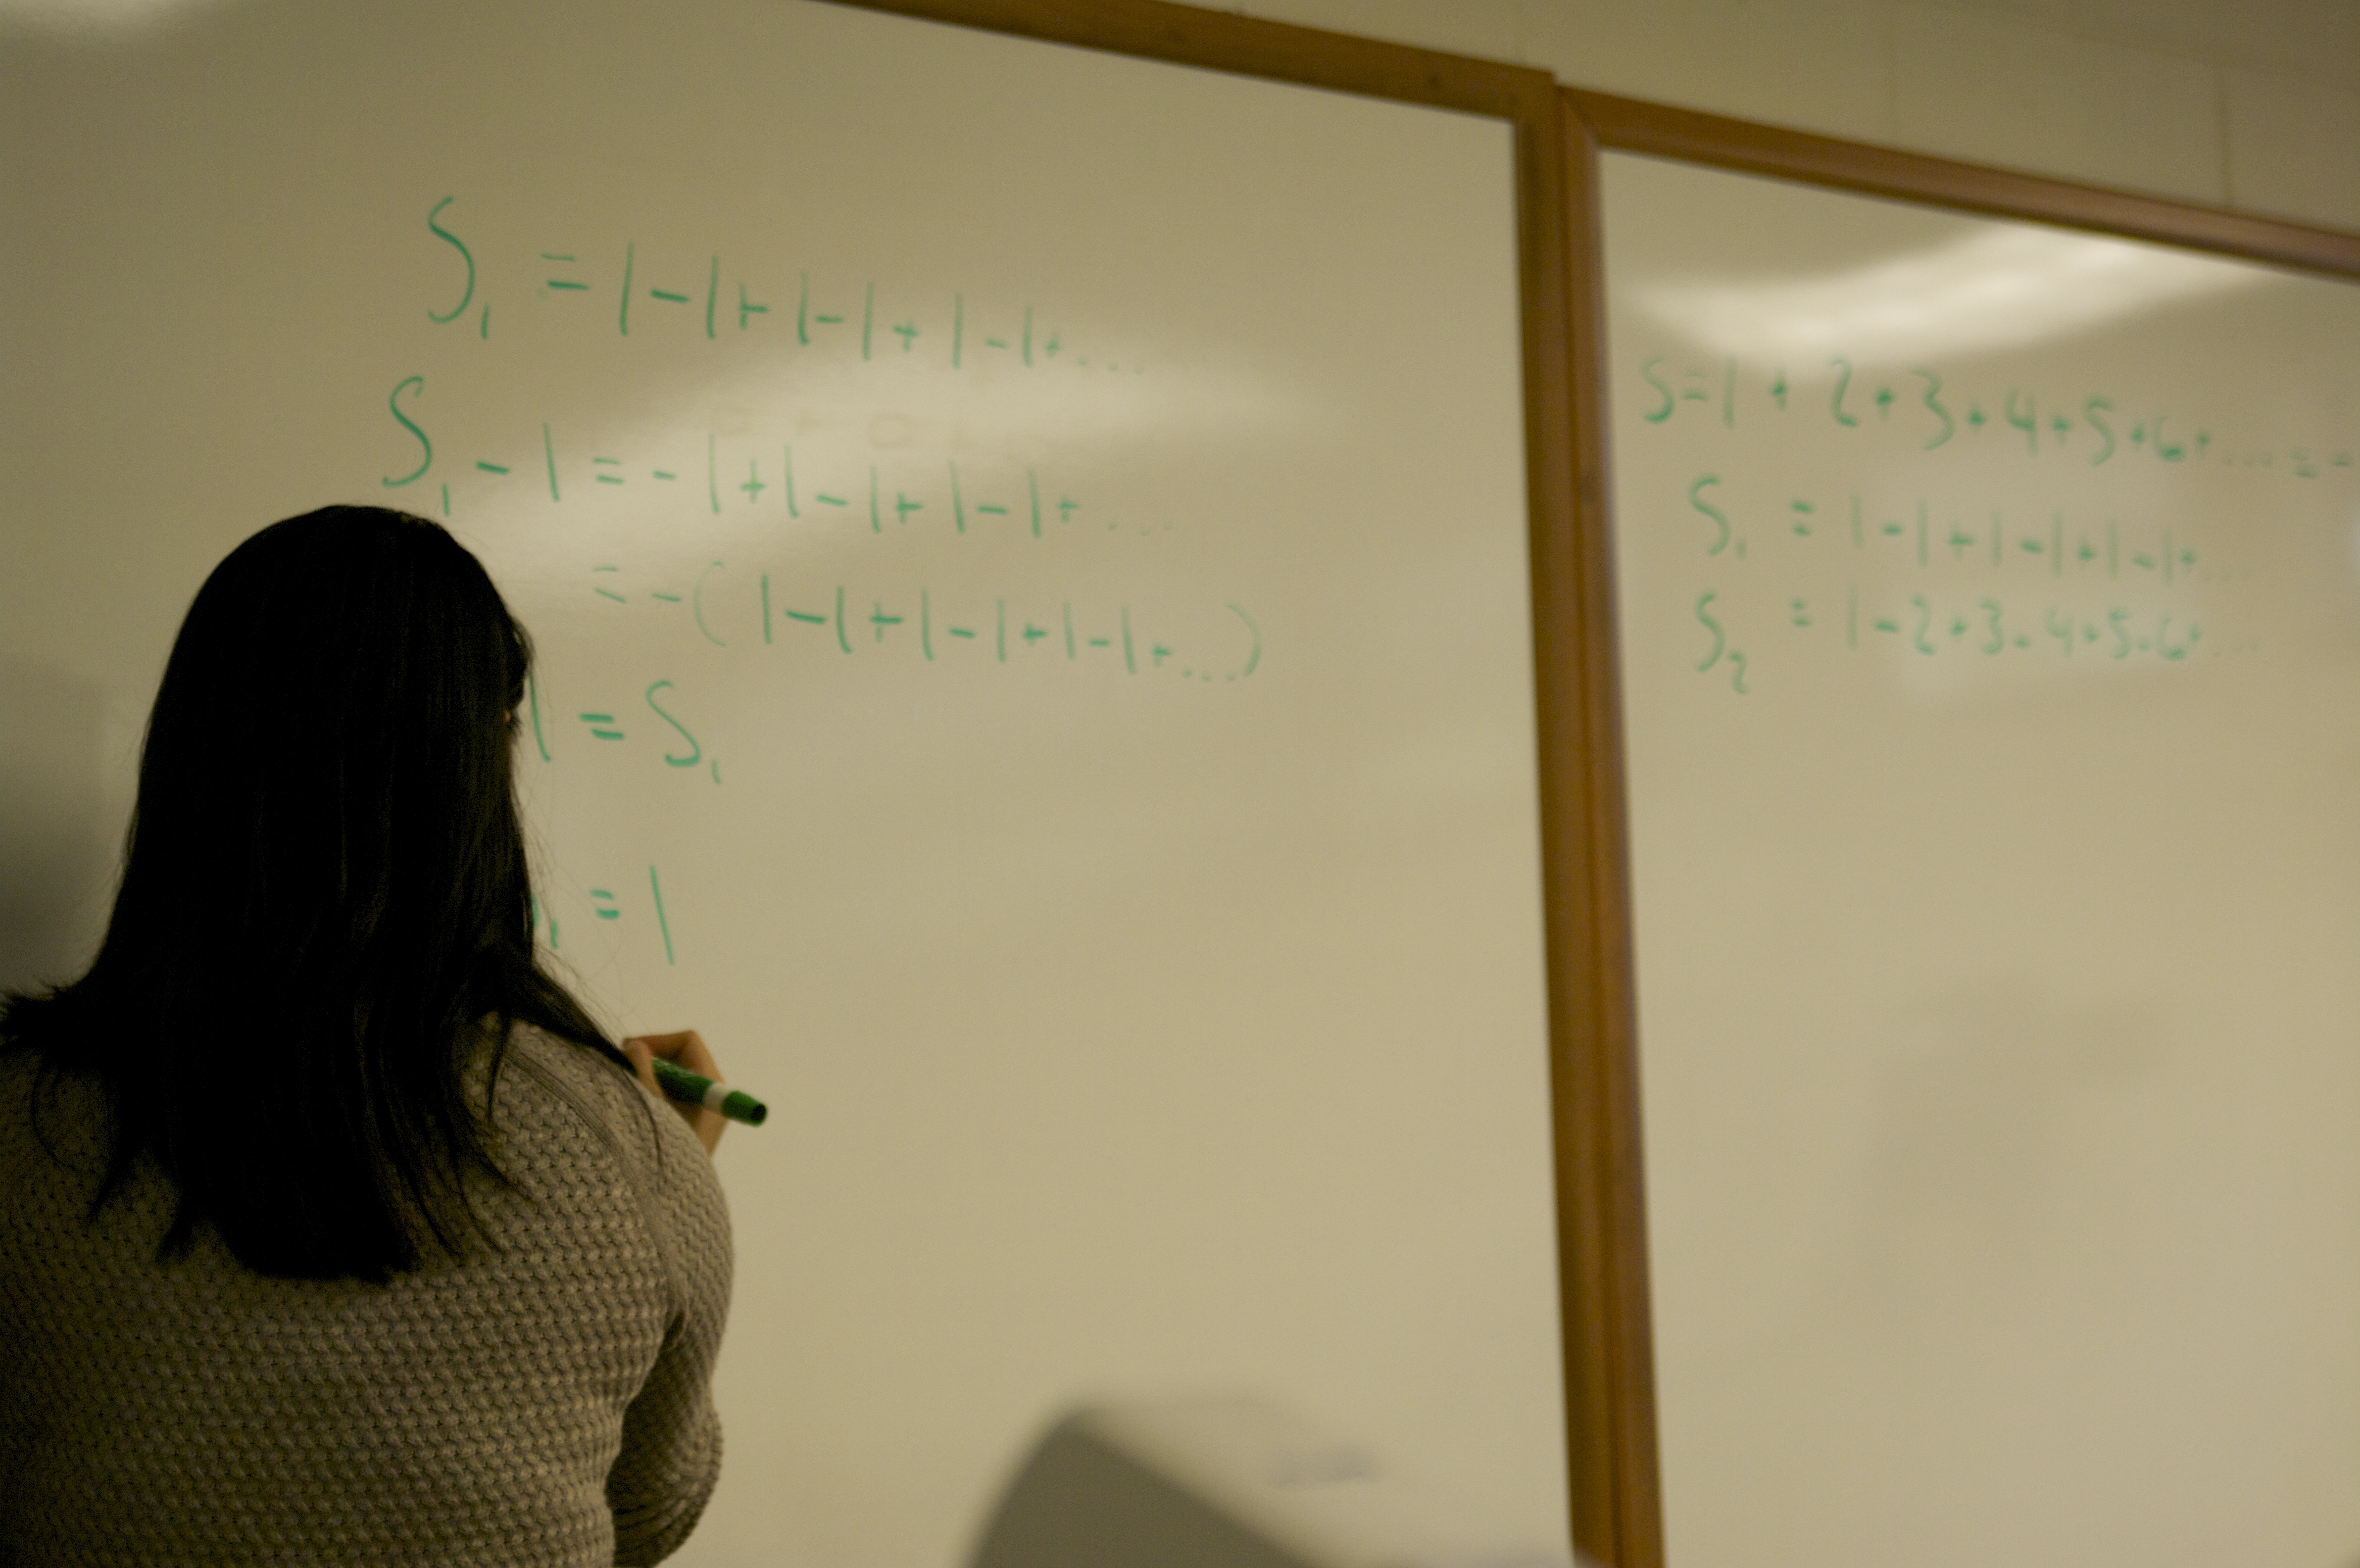 S₁ = 1-1+1-1+1-1+...
S₁ - 1 = -1+1-1+1-1+...
= -(1-1+1-1+1-1+...)
1 = S₁
₁ = 1
S=1+2+3+4+5+6+... = -
S₁ = 1-1+1-1+1-1+...
S₂ = 1-2+3-4+5-6+...